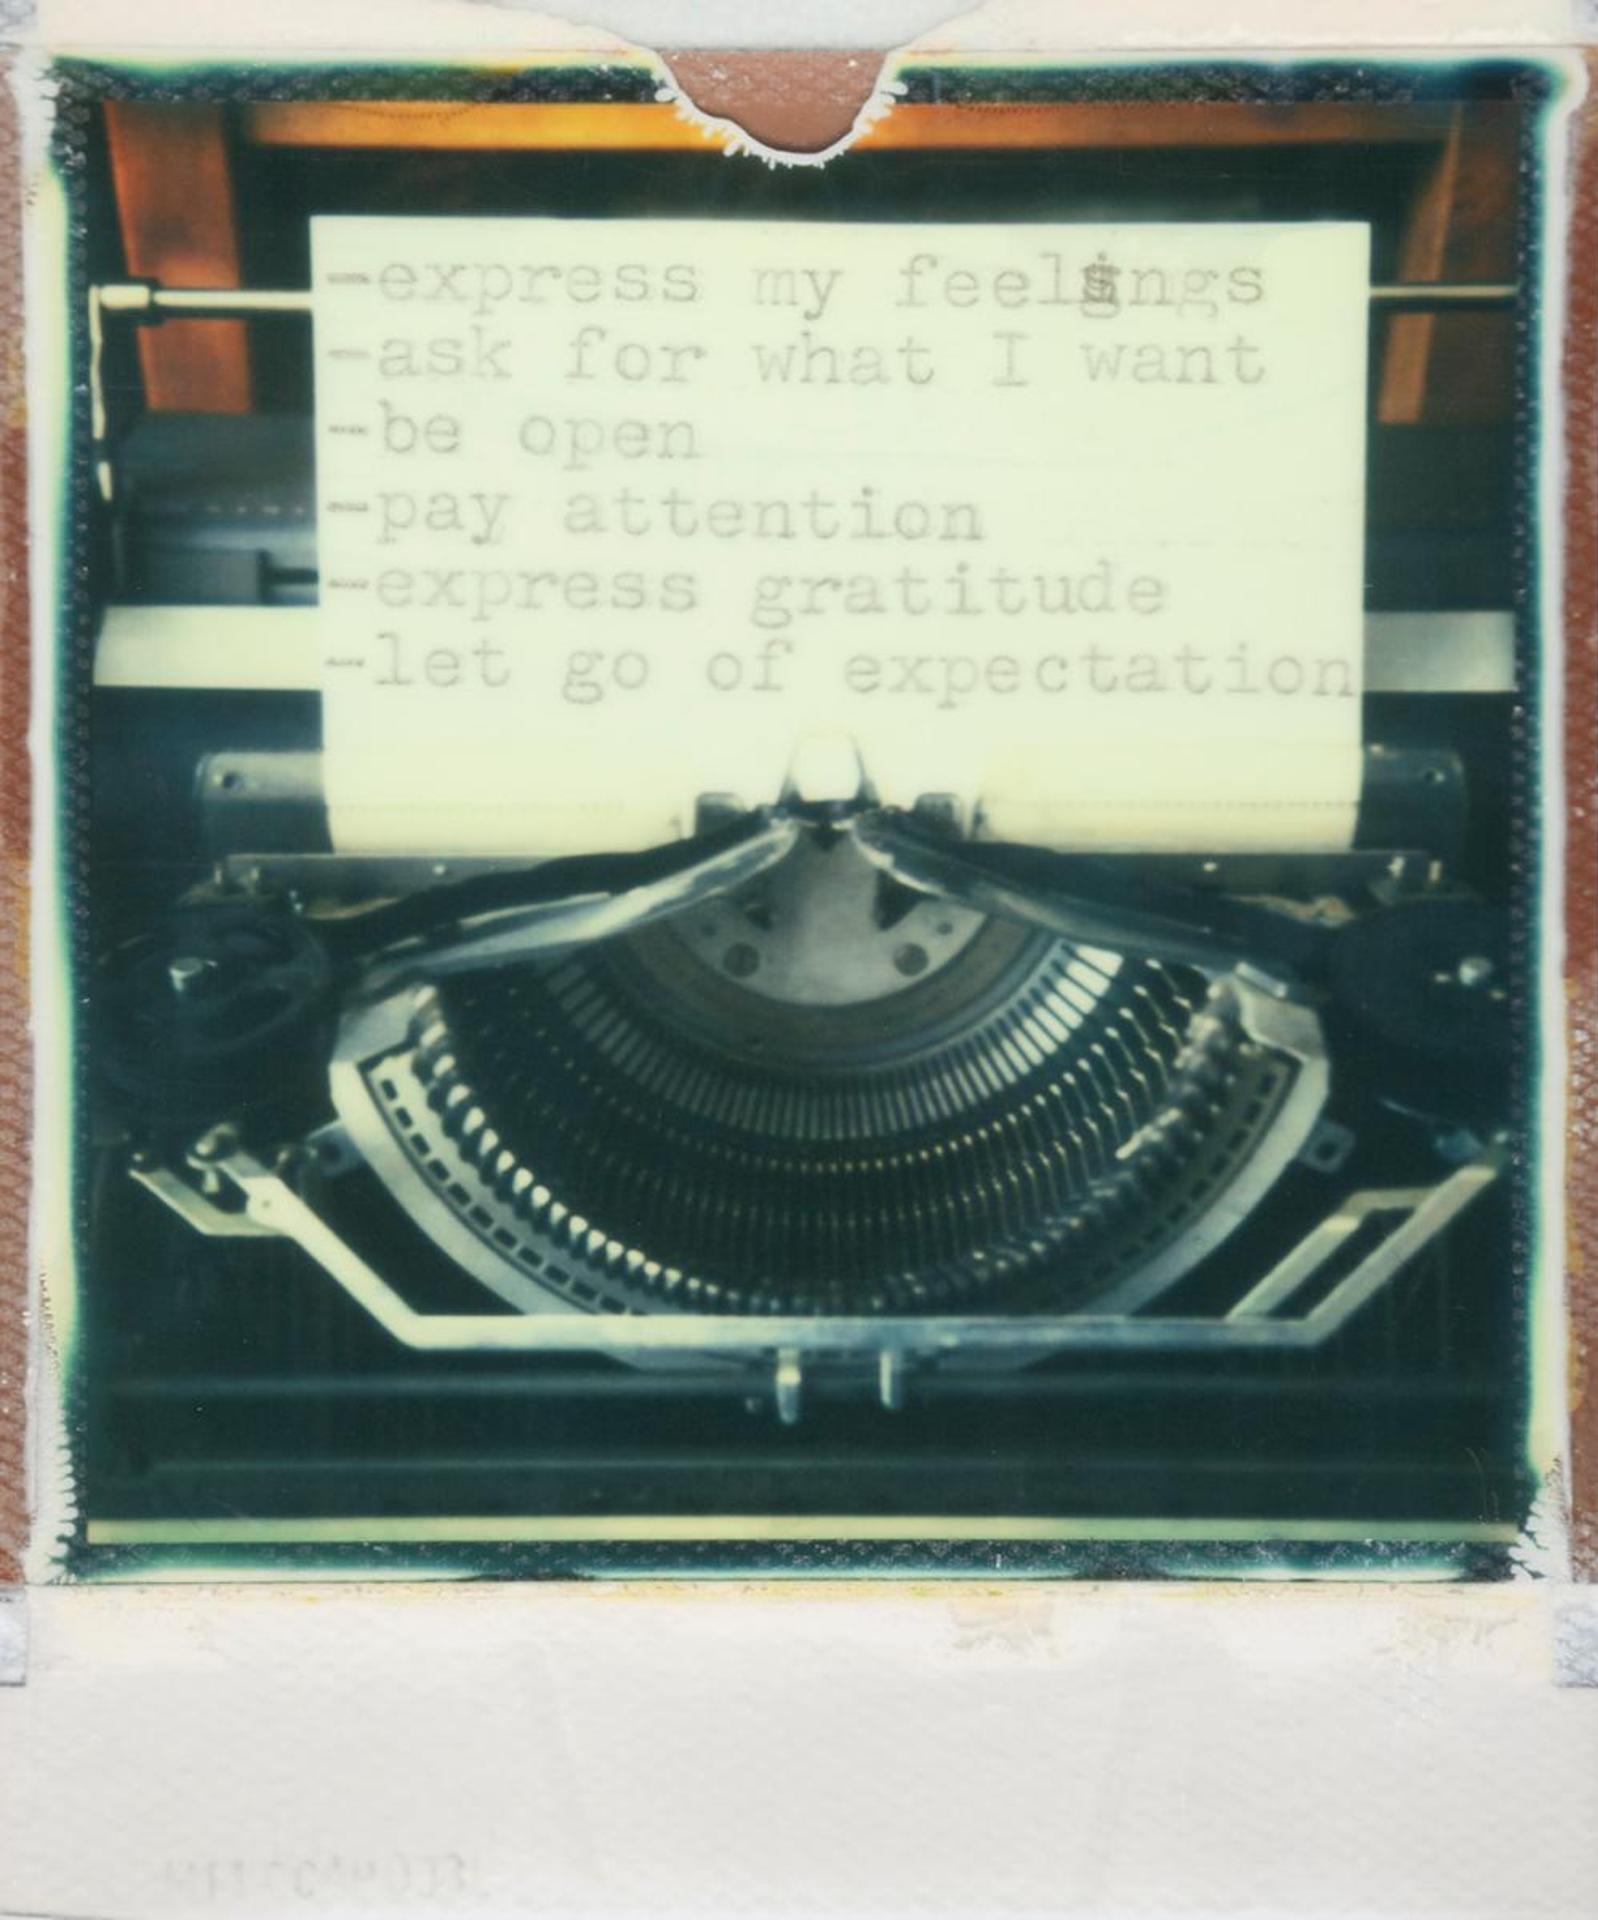 -express my feelings
-ask for what I want
-be open
-pay attention
-express gratitude
-let go of expectation